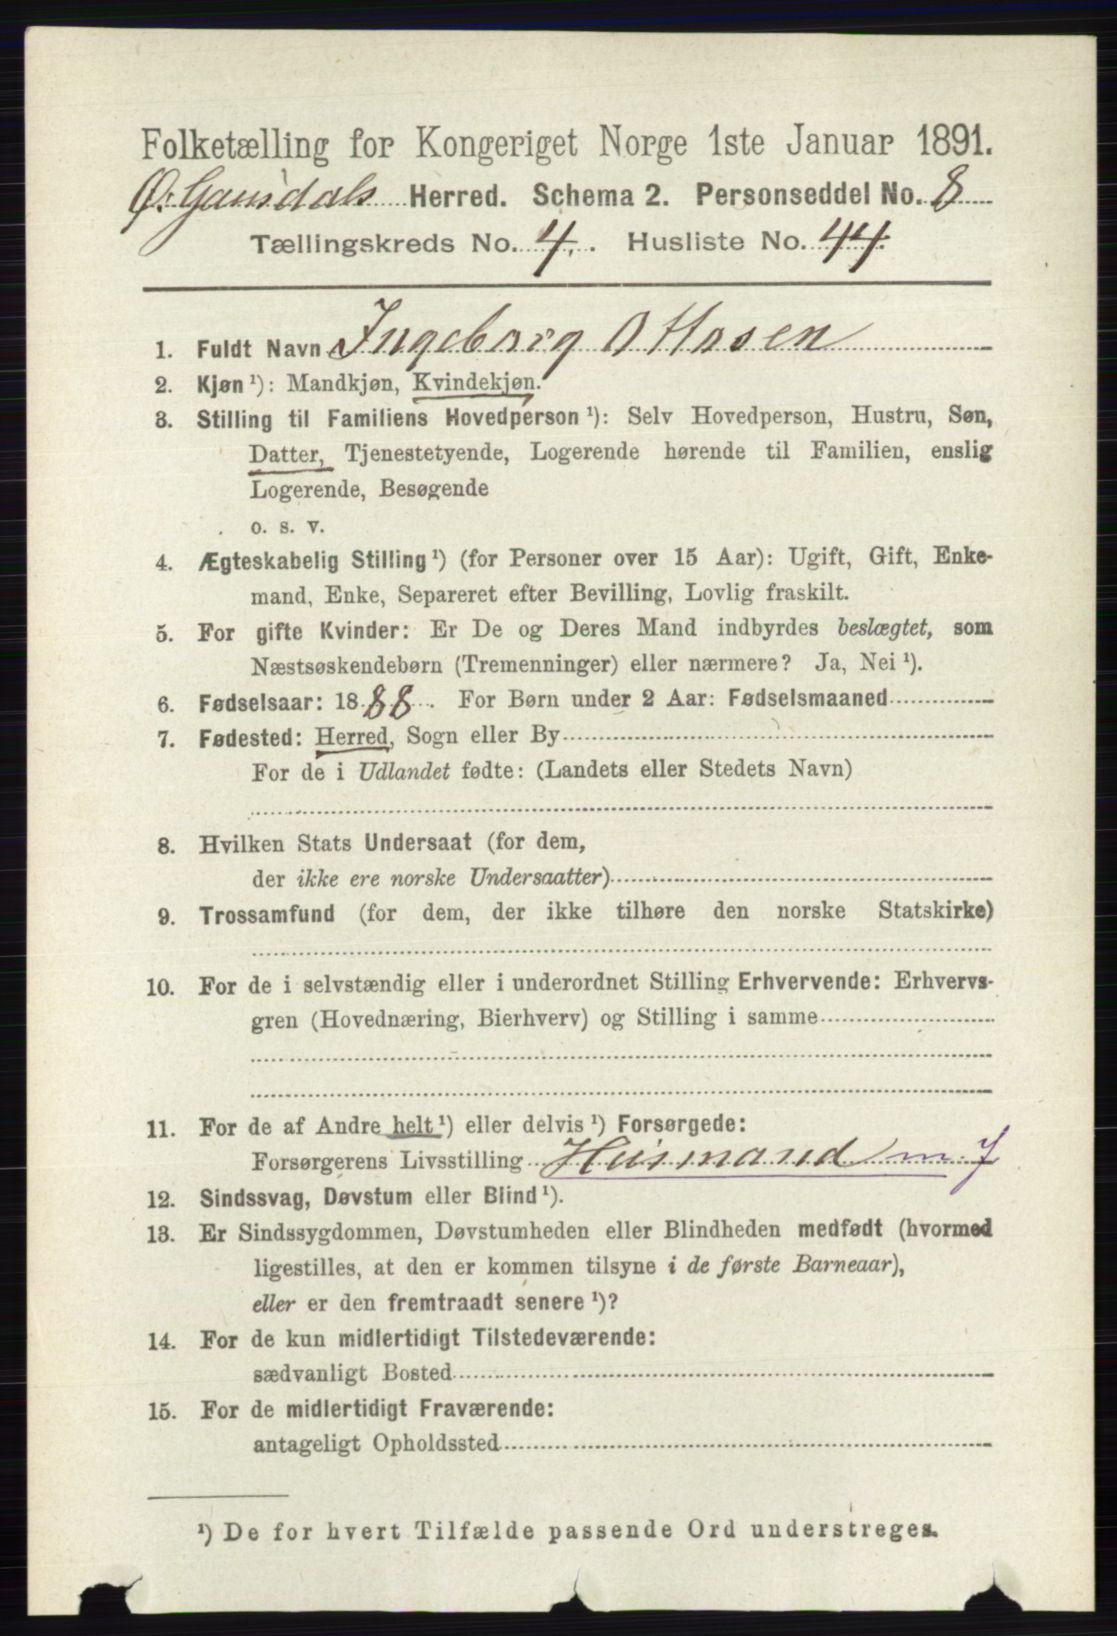 Folketælling for Kongeriget Norge 1ste Januar 1891.
Ø. Gausdals Herred. Schema 2. Personseddel No. 8
Tællingskreds No. 4. Husliste No. 44
1. Fuldt Navn Ingeborg Ottosen
2. Kjøn ¹): Mandkjøn, Kvindekjøn.
3. Stilling til Familiens Hovedperson ¹): Selv Hovedperson, Hustru, Søn,
Datter, Tjenestetyende, Logerende hørende til Familien, enslig
Logerende, Besøgende
o. s. v.
4. Ægteskabelig Stilling ¹) (for Personer over 15 Aar): Ugift, Gift, Enke-
mand, Enke, Separeret efter Bevilling, Lovlig fraskilt.
5. For gifte Kvinder: Er De og Deres Mand indbyrdes beslægtet, som
Næstsøskendebørn (Tremenninger) eller nærmere? Ja, Nei ¹).
6. Fødselsaar: 1888. For Børn under 2 Aar: Fødselsmaaned
7. Fødested: Herred, Sogn eller By
For de i Udlandet fødte: (Landets eller Stedets Navn)
8. Hvilken Stats Undersaat (for dem,
der ikke ere norske Undersaatter)
9. Trossamfund (for dem, der ikke tilhøre den norske Statskirke)
10. For de i selvstændig eller i underordnet Stilling Erhvervende: Erhvervs-
gren (Hovednæring, Bierhverv) og Stilling i samme
11. For de af Andre helt ¹) eller delvis ¹) Forsørgede:
Forsørgerens Livsstilling Husmand m. J
12. Sindssvag, Døvstum eller Blind ¹).
13. Er Sindssygdommen, Døvstumheden eller Blindheden medfødt (hvormed
ligestilles, at den er kommen tilsyne i de første Barneaar),
eller er den fremtraadt senere ¹)?
14. For de kun midlertidigt Tilstedeværende:
sædvanligt Bosted
15. For de midlertidigt Fraværende:
antageligt Opholdssted
¹) De for hvert Tilfælde passende Ord understreges.